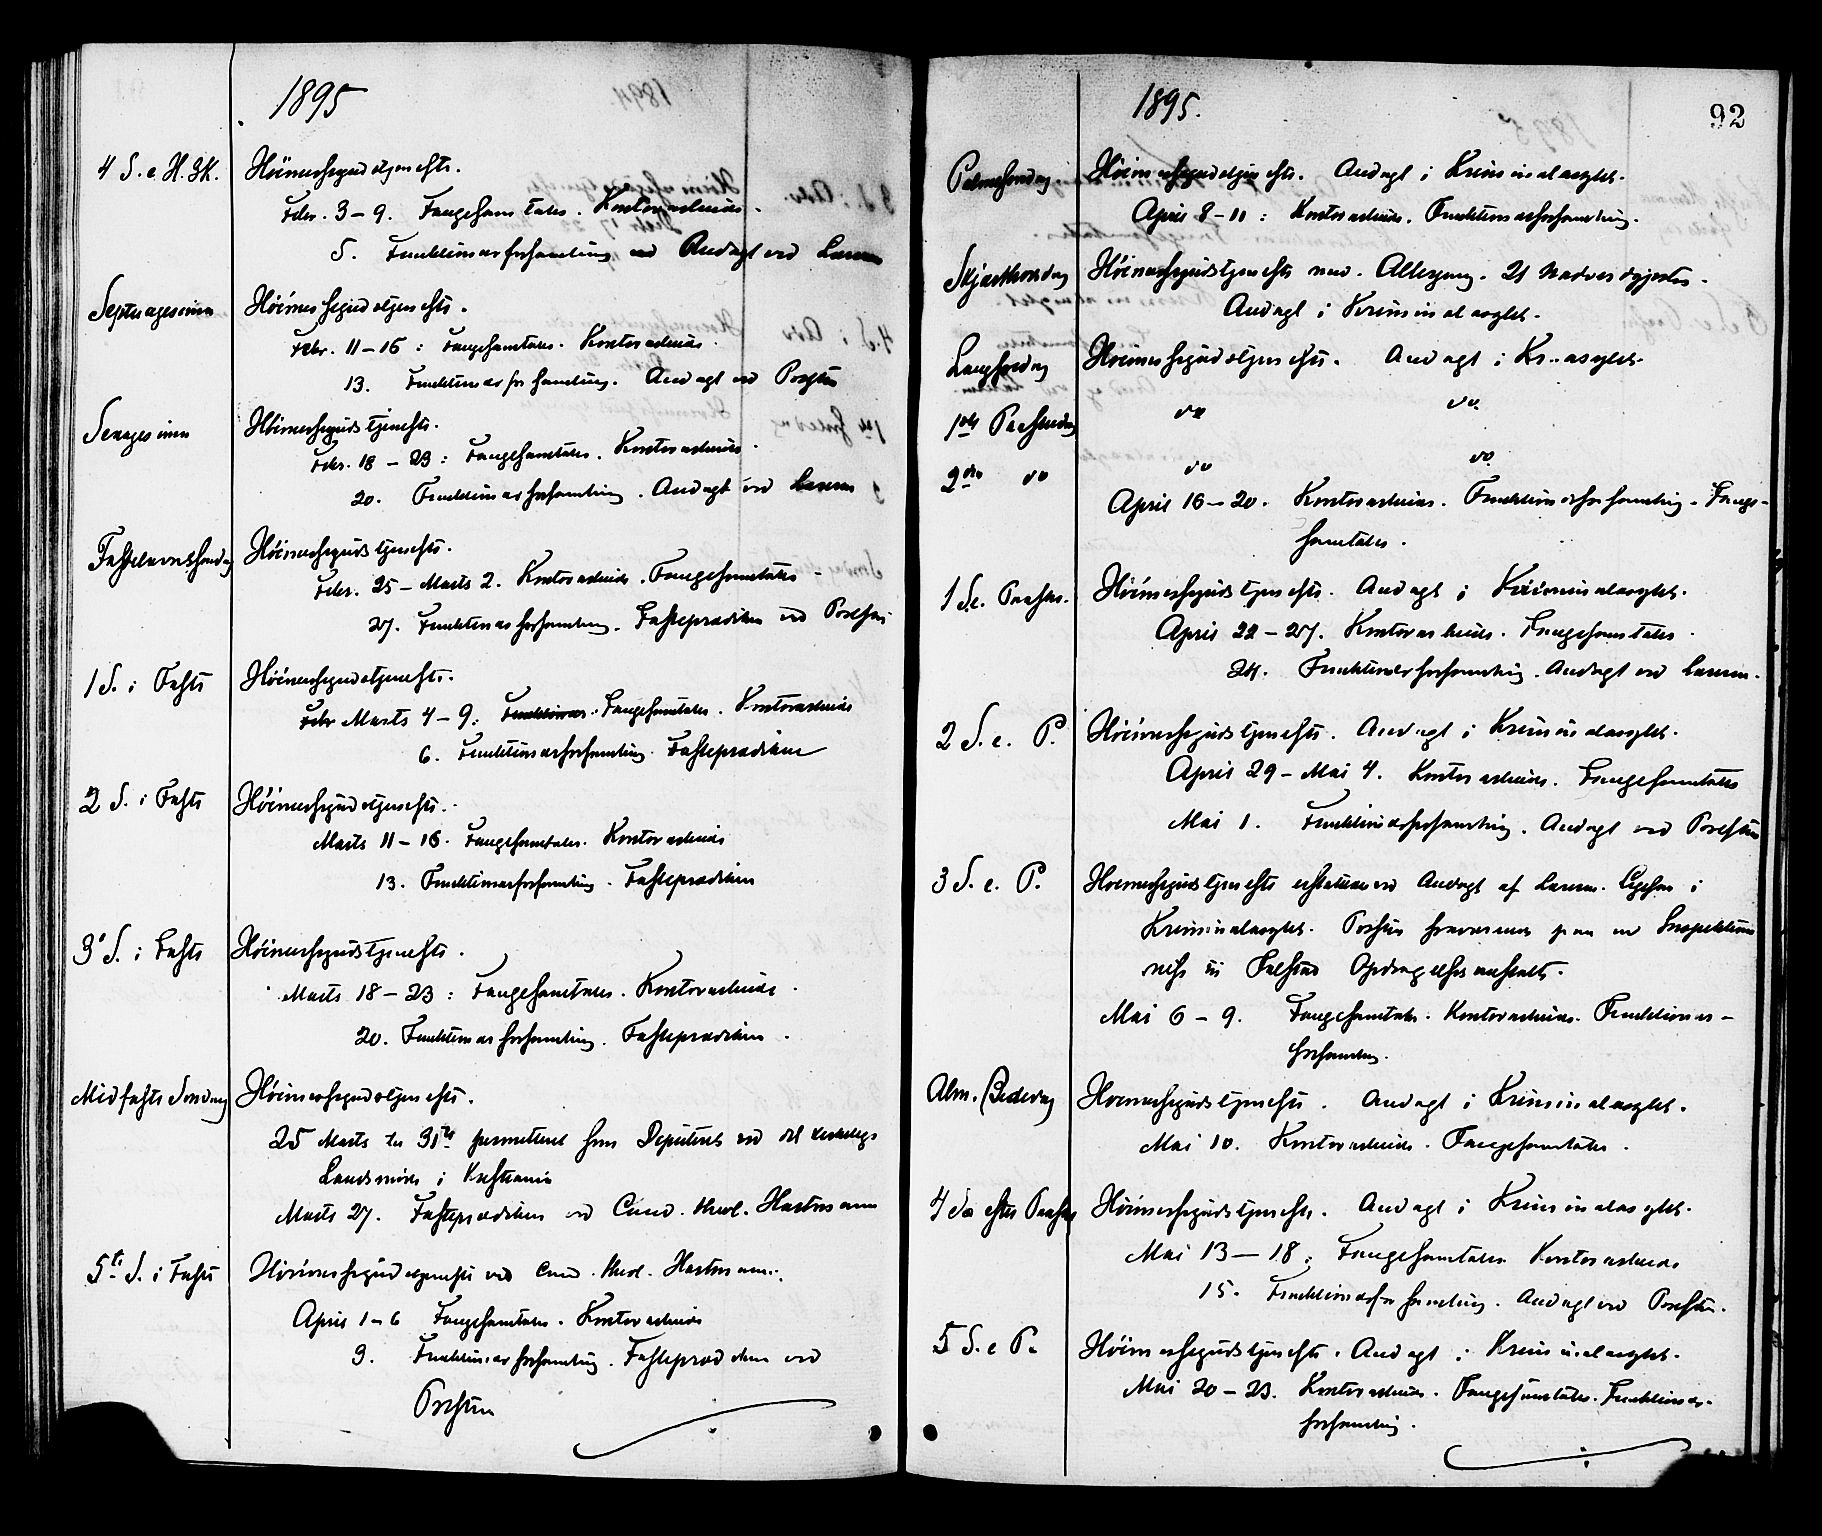 1895
4 S. e. H. 3 K. Höimessegudstjeneste.
Febr. 3 – 9. Fangesamtaler. Kontorarbeide.
5. Funktionærforsamling Andagt ved Læreren
Septuagesima Höimessegudstjeneste.
Febr. 11 – 16 : Fangesamtaler. Kontorarbeide.
13. Funktionærforsamling. Andagt ved Præsten
Sexagesima Höimessegudstjeneste.
Febr. 18 – 23 : Fangesamtaler. Kontorarbeide.
20. Funktionærforsamling. Andagt ved Læreren
Fastelavnssøndag Höimessegudstjeneste.
Febr. 25 – Marts 2. Kontorarbeide. Fangesamtaler.
27. Funktionærforsamling. Fasteprædiken ved Præsten
1 S. i Faste Höimessegudstjeneste.
Febr Marts 4 – 9. Funktionær. Fangesamtaler. Kontorarbeide
6. Funktionærforsamling. Fasteprædiken
2 S. i Faste Höimessegudstjeneste.
Marts 11 – 16. Fangesamtaler. Kontorarbeide
13. Funktionærforsamling. Fasteprædiken
3 S. i Faste Höimessegudstjeneste.
Marts 18 – 23 : Fangesamtaler. Kontorarbeide.
20. Funktionærforsamling. Fasteprædiken.
Midfaste Søndag Höimessegudstjeneste.
25 Marts til 31te permitteret som Deputeret ved det kirkelige
Landsmöde i Kristiania
Marts 27. Fasteprædiken ved Cand. theol. Hartmann
5te S. i Faste Höimessegudstjeneste ved Cand. theol. Hartmann.
April 1 – 6 Fangesamtaler. Kontorarbeide
3. Funktionærforsamling. Fasteprædiken ved
Præsten
1895.
92
Palmesøndag Höimessegudstjeneste. Andagt i Kriminalasylet.
April 8 – 11 : Kontorarbeide. Funktionærforsamling.
Skjærthorsdag Höimessegudstjeneste med Altergang. 21 Nadvergjester.
Andagt i Kriminalasylet.
Langfredag Höimessegudstjeneste. Andagt i Kr. asylet.
1ste Paaskedag do do.
2den do do do.
April 16 – 20. Kontorarbeide. Funktionærforsamling. Fange-
samtaler.
1 S. e. Paaske. Höimessegudstjeneste. Andagt i Kriminalasylet.
April 22 – 27. Kontorarbeide. Fangesamtaler.
24. Funktionærforsamling. Andagt ved Læreren.
2 S. e. P. Höimessegudstjeneste. Andagt i Kriminalasylet.
April 29 – Mai 4. Kontorarbeide. Fangesamtaler
Mai 1. Funktionærforsamling. Andagt ved Præsten
3 S. e. P. Höimessegudstjeneste erstattet ved Andagt af Læreren. Ligesaa i
Kriminalasylet. Præsten fraværende paa en Inspektions
reise til Falstad Opdragelsesanstalt.
Mai 6 – 9. Fangesamtaler. Kontorarbeide. Funktionær-
forsamling.
Alm. Bededag Höimessegudstjeneste. Andagt i Kriminalasylet.
Mai 10. Kontorarbeide. Fangesamtaler.
4 Sø efter Paaske Höimessegudstjeneste. Andagt i Kriminalasylet.
Mai 13 – 18 : Fangesamtaler Kontorarbeide
15. Funktionærforsamling. Andagt ved Præsten.
5 S. e P. Höimessegudstjeneste. Andagt i Kriminalasylet.
Mai 20 – 23. Kontorarbeide. Fangesamtaler. Funktionær-
forsamling.